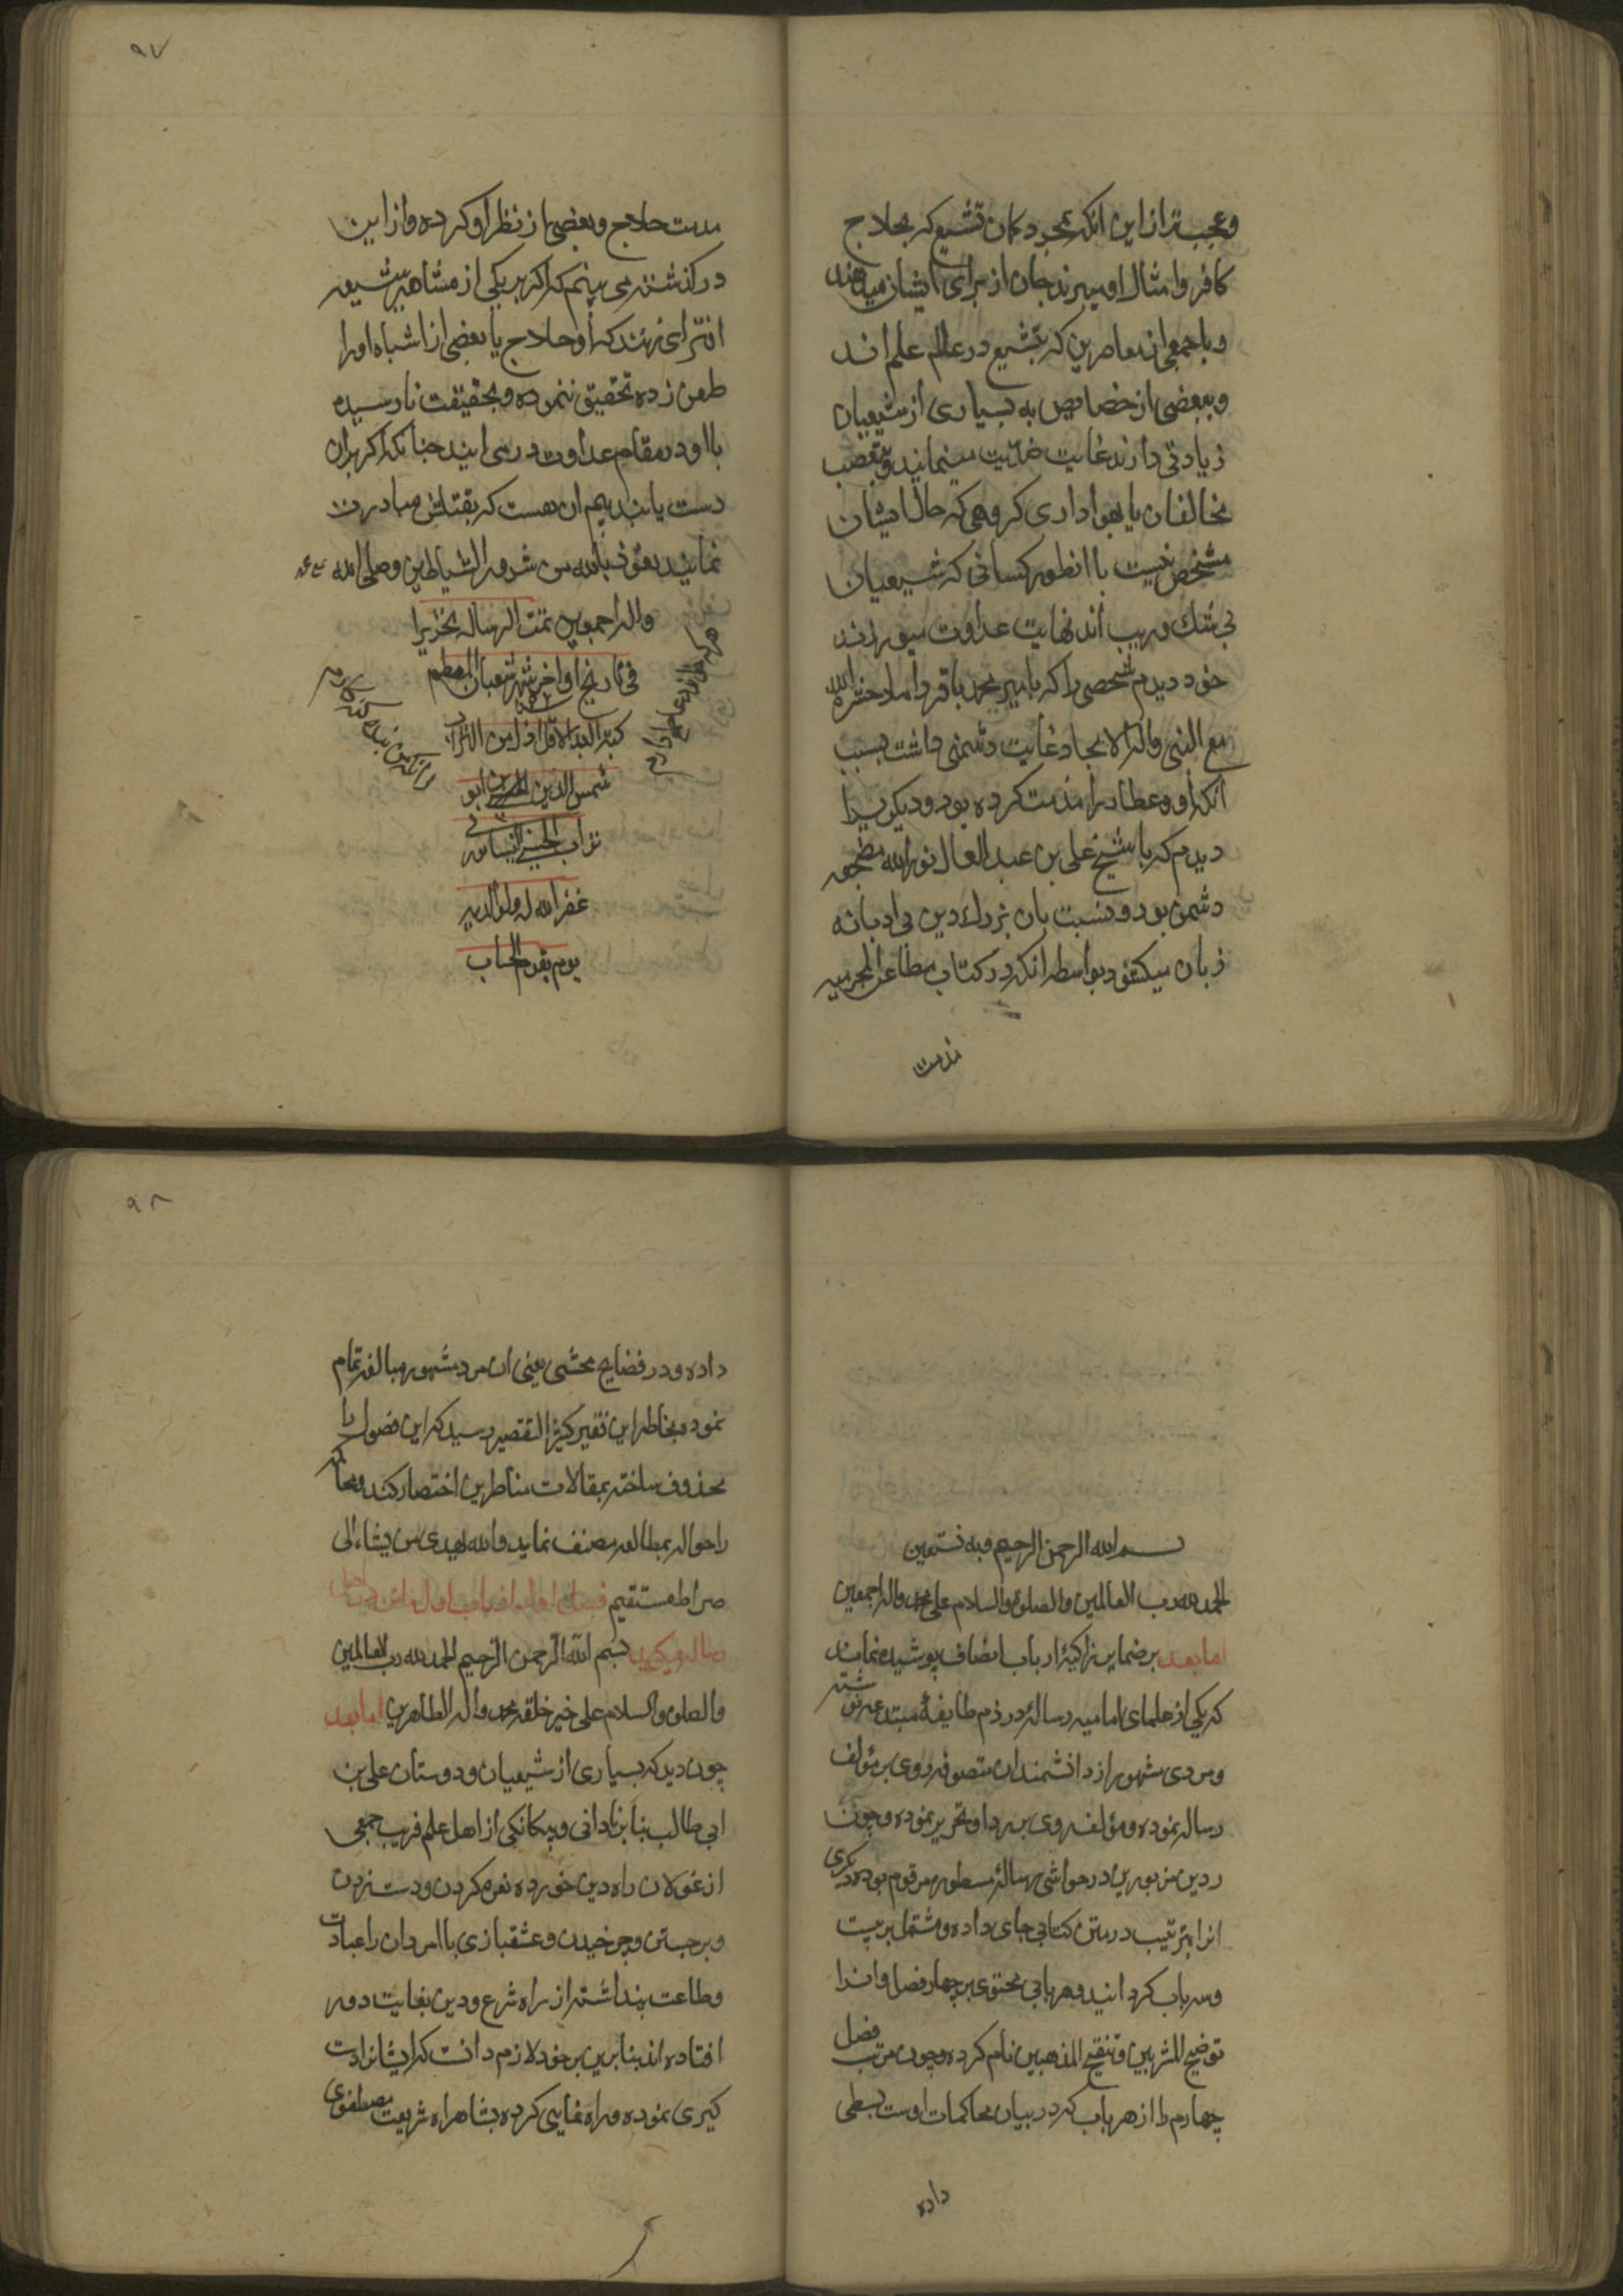 وعجب‌تر از این آنکه بمجرد گمان تشیع که بحلاج
کافر و امثال او میبرند جان از برای ایشان میدهند
و با جمعی از معاصرین که بتشیع در عالم علم اند
و ببعضی از خصایص به بسیاری از شیعیان
زیادتی دارند غایت ضدیت مینمایند و بتعصب
مخالفان یا بهواداری گروهی که حال ایشان
مشخص نیست با انطور کسانی که شیعیان
بی شک و ریب اند نهایت عداوت میورزند
خود دیدم شخصی را که با میر محمد باقر داماد حشره الله
مع النبی واله الامجاد غایت دشمنی داشت بسبب
انکه او عطار را مذمت کرده بود و دیگریرا
دیدم که با شیخ علی بن عبد العال نور الله مضجعه
دشمن بود و نسبت بان بزرك دین بی ادبانه
زبان میکشود بواسطه انکه در کتاب مطاعن المجرمیه
مذمت
۹۷
مذمت حلاج و بعضی از نظرا او کرده و از این
درگذشته می بینم که اگر بر یکی از مشاهیر شیعه
افترای نهند که او حلاج یا بعضی از اشباه او را
طعن زده تحقیق ننموده و بحقیقت نارسیده
با او در مقام عداوت در می ایند چنانکه اگر بران
دست یابند بیم ان هست که بقتلش مبادرت
نمایند نعوذ بالله من شرور الشیاطین وصلی الله علی محمد
واله اجمعین تمت الرساله تحریرا
فی تاریخ اواخر شهر شعبان المعظم
کتبه العبد الاقل اذل من التراب
شمس الدین ابو
تراب الحسینی
غفر الله له ولوالدیه
یوم یقوم الحساب
هر که خواند دعا طمع دارم
زانکه من بنده گنه کارم
بسم الله الرحمن الرحیم وبه نستعین
الحمد لله رب العالمین والصلوة والسلام علی محمد واله اجمعین
اما بعد بر ضمایر زاکیۀ ارباب انصاف پوشیده نماند
که یکی از علمای امامیه رسالۀ در ذم طایفۀ مبتدعه نوشته
و مردی مشهور از دانشمندان متصوفه ردی بر مؤلف
رساله نموده و مؤلف ردی بر رد او تحریر نموده و چون
ردین مزبورین در حواشی رسالۀ مسطوره مرقوم بوده دیگری
انرا بترتیب در متن کتابی جای داده و مشتمل بر بیست
و سه باب گردانید و هر بابی محتوی بر چهار فصل و انرا
توضیح المشربین و تنقیح المذهبین نام کرده و چون مرتب فصل
چهارم را از هر باب که در بیان محاکمات اوست بسطی
داده
۹۸
داده و در فضایح محشی یعنی ان مرد مشهور مبالغه تمام
نموده بخاطر این فقیر کثیر التقصیر رسید که این فصول را
محذوف ساخته بمقالات مناظرین اختصار کند و محاکمه
را حواله بمطالعه مصنف نماید والله یهدی من یشاء الی
صراط مستقیم
رساله میگوید بسم الله الرحمن الرحیم الحمد لله رب العالمین
والصلوة والسلام علی خیر خلقه محمد واله الطاهرین اما بعد
چون دید که بسیاری از شیعیان و دوستان علی بن
ابی طالب بنا بر نادانی و بیکانکی از اهل علم فریب جمعی
از غولان راه دین خورده نعره کردن و دست زدن
و برجستن و چرخیدن و عشقبازی با امردان را عبادت
و طاعت پنداشته از راه شرع و دین بغایت دور
افتاده اند بنا برین بر خود لازم دانست که ایشانرا دست
گیری نموده و راه نمایی کرده بشاهراه شریعت مصطفوی